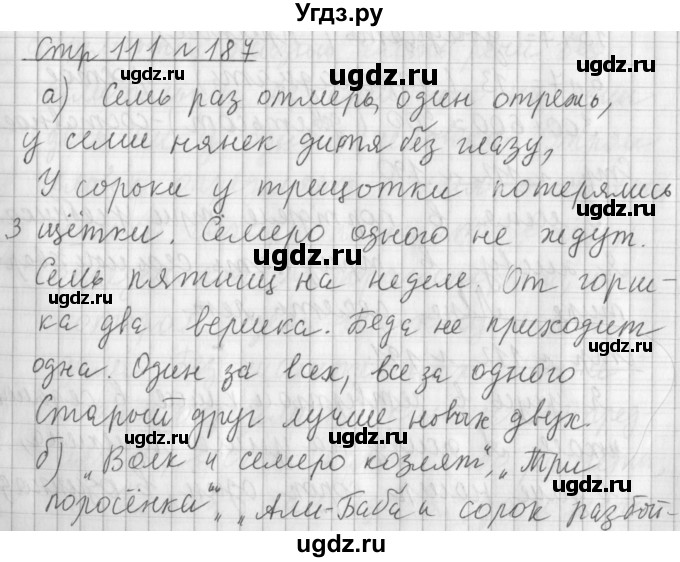 Угдз.ру
Стр 111 № 187
а) Семь раз отмерь, один отрежь,
у семи нянек дитя без глазу,
У сороки у трещотки потерялись
3 щётки. Семеро одного не ждут.
Семь пятниц на неделе. От горш-
ка два вершка. Беда не приходит
одна. Один за всех, все за одного
Старый друг лучше новых двух.
б) „Волк и семеро козлят“, „Три
поросёнка“, „Али-Баба и сорок разбой-
ugdz.ru
ugdz.ru
ugdz.ru
ugdz.ru
ugdz.ru
ugdz.ru
ugdz.ru
ugdz.ru
ugdz.ru
ugdz.ru
ugdz.ru
ugdz.ru
ugdz.ru
ugdz.ru